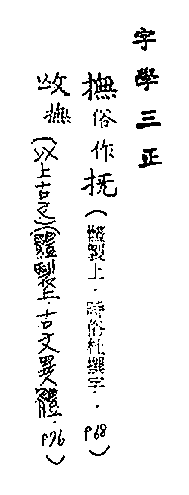 字學三正
撫俗作抚(體製上·時俗杜撰字·p68)
𢻲𢻬(以上古文)(體製上·古文異體·p76)